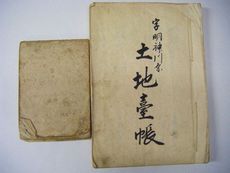 字明神川原
土地臺帳